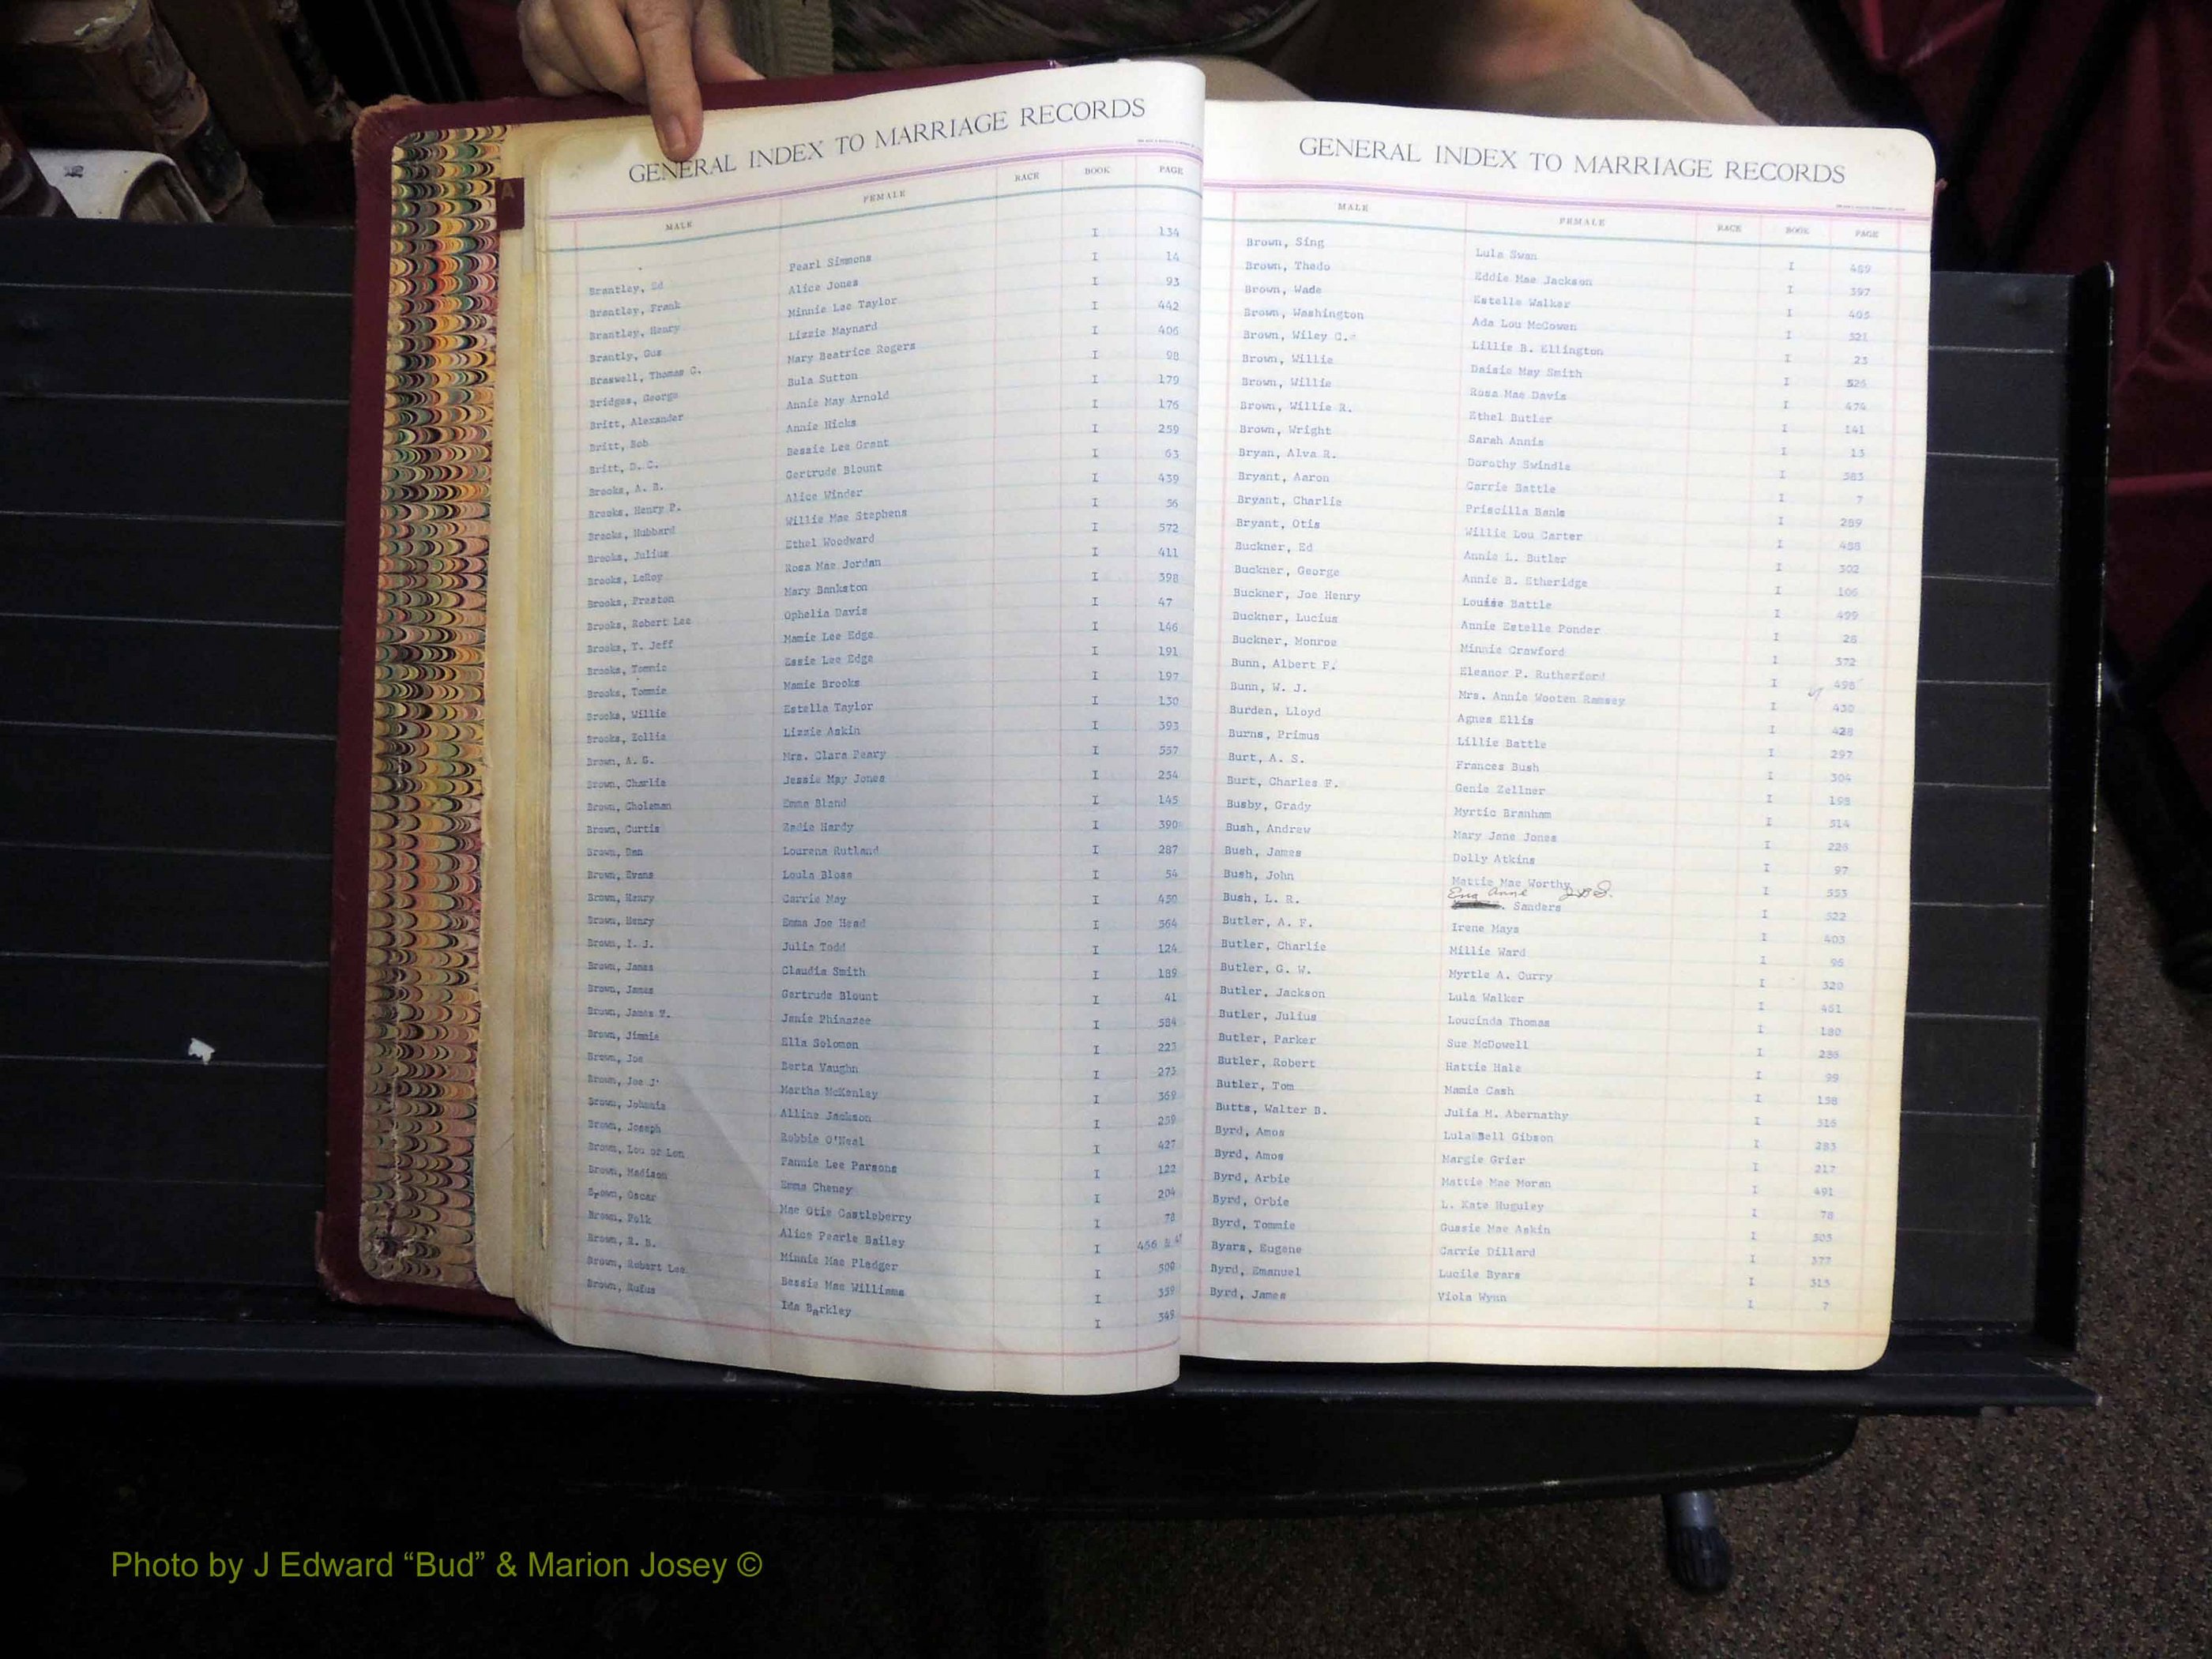 GENERAL INDEX TO MARRIAGE RECORDS
MALE FEMALE RACE BOOK PAGE
Brantley, Ed Pearl Simmons I 134
Brantley, Frank Alice Jones I 14
Brantley, Henry Minnie Lee Taylor I 93
Brantly, Gus Lizzie Maynard I 442
Braswell, Thomas C. Mary Beatrice Rogers I 406
Bridges, George Eula Sutton I 98
Britt, Alexander Annie May Arnold I 179
Britt, Bob Annie Hicks I 176
Britt, D. C. Bessie Lee Grant I 259
Brooks, A. B. Gertrude Blount I 63
Brooks, Henry P. Alice Winder I 439
Brooks, Hubbard Willie Mae Stephens I 56
Brooks, Julius Ethel Woodward I 572
Brooks, LeRoy Rosa Mae Jordan I 411
Brooks, Preston Mary Bankston I 398
Brooks, Robert Lee Ophelia Davis I 47
Brooks, T. Jeff Mamie Lee Edge I 146
Brooks, Tommie Essie Lee Edge I 191
Brooks, Tommie Mamie Brooks I 197
Brooks, Willie Estella Taylor I 130
Brooks, Zollie Lizzie Askin I 393
Brown, A. G. Mrs. Clara Peary I 557
Brown, Charlie Jessie May Jones I 254
Brown, Choleman Emma Bland I 145
Brown, Curtis Zadie Hardy I 390
Brown, Dan Lourena Rutland I 287
Brown, Evans Loula Bloss I 54
Brown, Henry Carrie May I 450
Brown, Henry Emma Joe Head I 564
Brown, I. J. Julia Todd I 124
Brown, James Claudia Smith I 189
Brown, James Gertrude Blount I 41
Brown, James W. Janie Phinazee I 584
Brown, Jimmie Ella Solomon I 223
Brown, Joe Berta Vaughn I 273
Brown, Joe J Martha McKenley I 369
Brown, Johnnie Alline Jackson I 259
Brown, Joseph Robbie O'Neal I 427
Brown, Lou or Lon Fannie Lee Parsons I 122
Brown, Madison Emma Cheney I 204
Brown, Oscar Mae Otis Castleberry I 78
Brown, Polk Alice Pearle Bailey I 466 &
Brown, R. B. Minnie Mae Pledger I 500
Brown, Robert Lee Bessie Mae Williams I 359
Brown, Rufus Ida Barkley I 349
GENERAL INDEX TO MARRIAGE RECORDS
MALE FEMALE RACE BOOK PAGE
Brown, Sing Lula Swan I 489
Brown, Thedo Eddie Mae Jackson I 397
Brown, Wade Estelle Walker I 405
Brown, Washington Ada Lou McCowen I 321
Brown, Wiley C. Lillie B. Ellington I 23
Brown, Willie Daisie May Smith I 526
Brown, Willie Rosa Mae Davis I 474
Brown, Willie R. Ethel Butler I 141
Brown, Wright Sarah Annis I 13
Bryan, Alva R. Dorothy Swindle I 583
Bryant, Aaron Carrie Battle I 7
Bryant, Charlie Priscilla Banks I 289
Bryant, Otis Willie Lou Carter I 488
Buckner, Ed Annie L. Butler I 302
Buckner, George Annie B. Etheridge I 106
Buckner, Joe Henry Louise Battle I 499
Buckner, Lucius Annie Estelle Ponder I 28
Buckner, Monroe Minnie Crawford I 372
Bunn, Albert F. Eleanor P. Rutherford I 498
Bunn, W. J. Mrs. Annie Wooten Ramsey I 430
Burden, Lloyd Agnes Ellis I 428
Burns, Primus Lillie Battle I 297
Burt, A. S. Frances Bush I 304
Burt, Charles F. Genie Zellner I 198
Busby, Grady Myrtic Branham I 514
Bush, Andrew Mary Jane Jones I 226
Bush, James Dolly Atkins I 97
Bush, John Mattie Mae Worthy I 553
Bush, L. R. Eng Anne Sanders I 522
Butler, A. F. Irene Mays I 403
Butler, Charlie Millie Ward I 95
Butler, G. W. Myrtle A. Curry I 320
Butler, Jackson Lula Walker I 461
Butler, Julius Loucinda Thomas I 180
Butler, Parker Sue McDowell I 236
Butler, Robert Hattie Hale I 99
Butler, Tom Mamie Cash I 138
Butts, Walter B. Julia M. Abernathy I 316
Byrd, Amos Lula Bell Gibson I 283
Byrd, Amos Margie Grier I 217
Byrd, Arbie Mattie Mae Moran I 491
Byrd, Orbie L. Kate Huguley I 78
Byrd, Tommie Gussie Mae Askin I 303
Byars, Eugene Carrie Dillard I 377
Byrd, Emanuel Lucile Byars I 313
Byrd, James Viola Wynn I 7
Photo by J Edward “Bud” & Marion Josey ©